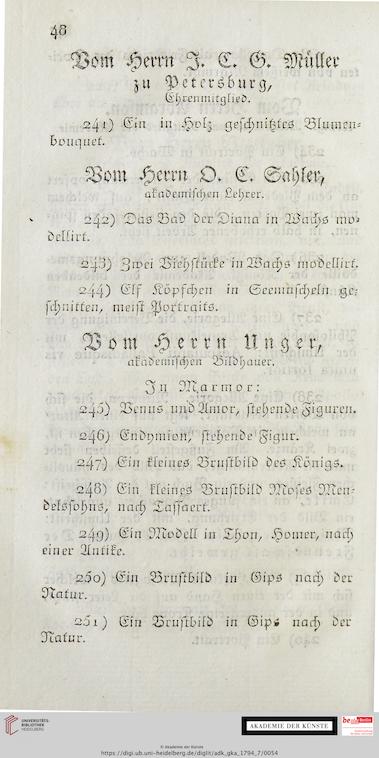 48
Vom Herrn J. C. G. Müller
zu Petersburg,
Ehrenmitglied.
241) Ein in Holz geschnitztes Blumen-
bouquet.
Vom Herrn O. C. Sahler,
akademischen Lehrer.
242) Das Bad der Diana in Wachs mo-
dellirt.
243) Zwei Viehstücke in Wachs modellirt.
244) Elf Köpfchen in Seemuscheln ge-
schnitten, meist Portraits.
Vom Herrn Unger,
akademischen Bildhauer.
In Marmor:
245) Venus und Amor, stehende Figuren.
246) Endymion, stehende Figur.
247) Ein kleines Brustbild des Königs.
248) Ein kleines Brustbild Moses Men-
delssohns, nach Tassaert.
249) Ein Modell in Thon, Homer, nach
einer Antike.
250) Ein Brustbild in Gips nach der
Natur.
251) Ein Brustbild in Gips nach der
Natur.
UNIVERSITÄTS-
BIBLIOTHEK
HEIDELBERG
AKADEMIE DER KÜNSTE
© Akademie der Künste
https://digi.ub.uni-heidelberg.de/diglit/adk_gka_1794_7/0054